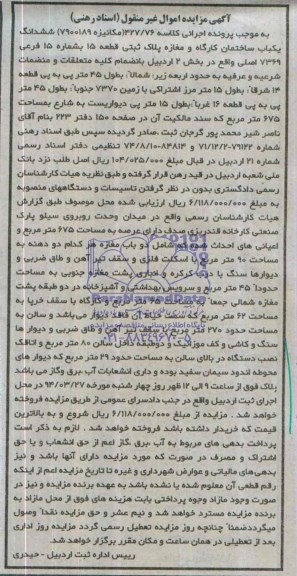 آگهی مزایده اموال غیر منقول (اسناد رهنی)
به موجب پرونده اجرائی کلاسه ۴۲۷/۷۶(مکانیزه ۷۹۰۰۱۸۹) ششدانگ
یکباب ساختمان کارگاه و مغازه پلاک ثبتی قطعه ۱۵ بشماره ۱۵ فرعی
۷۳۶۹ اصلی واقع در بخش ۲ اردبیل بانضمام کلیه متعلقات و منضمات
شرعیه و عرفیه به حدود اربعه زیر: شمالا: بطول ۴۵ متر پی به پی قطعه
۱۴ شرقا: بطول ۱۵ متر مرز اشتراکی با زمین ۷۳۷۰ جنوبا: بطول ۴۵ متر
پی به پی قطعه ۱۶ غربا: بطول ۱۵ متر پی دیواریست به شارع بمساحت
۶۷۵ متر مربع که سند مالکیت آن در صفحه ۱۵۰ دفتر ۲۲۳ بنام آقای
ناصر شیر محمد پور گرجان ثبت .صادر گردیده سپس طبق اسناد رهنی
شماره ۷۹۱۲۲-۷۱/۱۲/۲ و ۸۴۸۱۴-۷۴/۸/۱۰ تنظیمی دفتر اسناد رسمی
شماره ۲۱ اردبیل در قبال مبلغ ۱۰۴/۰۲۵/۰۰۰ ریال اصل طلب نزد بانک
ملی شعبه اردبیل در قید رهن قرار گرفته و طبق نظریه هیات کارشناسان
رسمی دادگستری بدون در نظر گرفتن تاسیسات و دستگاههای منصوبه
به مبلغ ۶/۱۱۸/۰۰۰/۰۰۰ ریال ارزیابی شده محل موصوف طبق گزارش
هیات کارشناسان رسمی واقع در میدان وحدت روبروی سیلو پارک
صنعتی کارخانه قندریزی صدف دارای عرصه به مساحت ۶۷۵ متر مربع و
اعیانی های احداث شده که شامل دو باب مغازه هر کدام دو دهنه به
مساحت ۹۰ متر مربع با اسکلت فلزی و سقف تیر آهن و طاق ضربی و
دیوارها سنگ با درب کرکره و انباری پشت مغازه جنوبی به مساحت
حدودا ۴۵ متر مربع و سرویس بهداشتی و آشپزخانه در دو طبقه پشت
مساحت ۶۲ متر مربع که
مساحت حدود ۲۷۰ متر مربع با سقف تیر آهن و طاق ضربی و دیوار ها
سنگ و کاشی و کف موزائیک و دوطبقه داخل سالن ۸۰ متر مربع و اتاقک
نصب دستگاه در بالای سالن به مساحت حدود ۲۹ متر مربع که دیوار های
محوطه اندود سیمان سفید بوده و داری انشعابات آب ،برق وگاز می باشد
پلاک فوق از ساعت ۹ الی ۱۲ ظهر روز چهار شنبه مورخه ۹۴/۰۳/۲۷ در محل
اجرای ثبت اردبیل واقع در جنب دادسرای عمومی از طریق مزایده فروخته
خواهد شد . مزایده از مبلغ ۶/۱۱۸/۰۰۰/۰۰۰ ریال شروع و به بالاترین
قیمت که خریدار داشته باشد فروخته خواهد شد . لازم به ذکر است
پرداخت بدهی های مربوط به آب ،برق ،گاز اعم از حق انشعاب و یا حق
اشتراک و مصرف در صورت که مورد مزایده دارای آنها باشد و نیز
بدهی های مالیاتی و عوارض شهرداری و غیره تا تاریخ مزایده اعم از اینکه
رقم قطعی آن معلوم شده یا نشده باشد به عهده برنده مزایده و نیز در
صورت وجود مازاد وجوه پرداختی بابت هزینه های فوق از محل مازاد به
برنده مزایده مسترد خواهد شد و نیم عشر و حق مزایده نقدا وصول
میگردد ضمنا چنانچه روز مزایده تعطیل رسمی گردد مزایده روز اداری
بعد از تعطیلی در همان ساعت و مکان مقرر برگزار خواهد شد.
رییس اداره ثبت اردبیل - حیدری